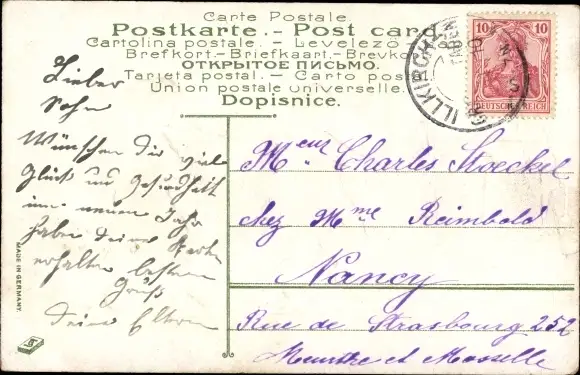 Carte Postale
Postkarte. - Post card
Cartolina postale. - Levelező-
Brefkort. - Briefkaart. - Brevko
ОТКРЫТОЕ ПИСЬМО.
Tarjeta postal. - Carto posta
Union postale universelle.
Dopisnice.
10 10
DEUTSCHES REICH
ILLKIRCH
Lieber
Sohn
Wünschen dir viel
Glück und Gesundheit
im neuen Jahr
habe deine Karte
erhalten besten
Gruß
deine Eltern
MADE IN GERMANY.
Meur Charles Stoeckel
chez Mme Reimbold
Nancy
Rue de Strasbourg 252
Meurthe et Moselle